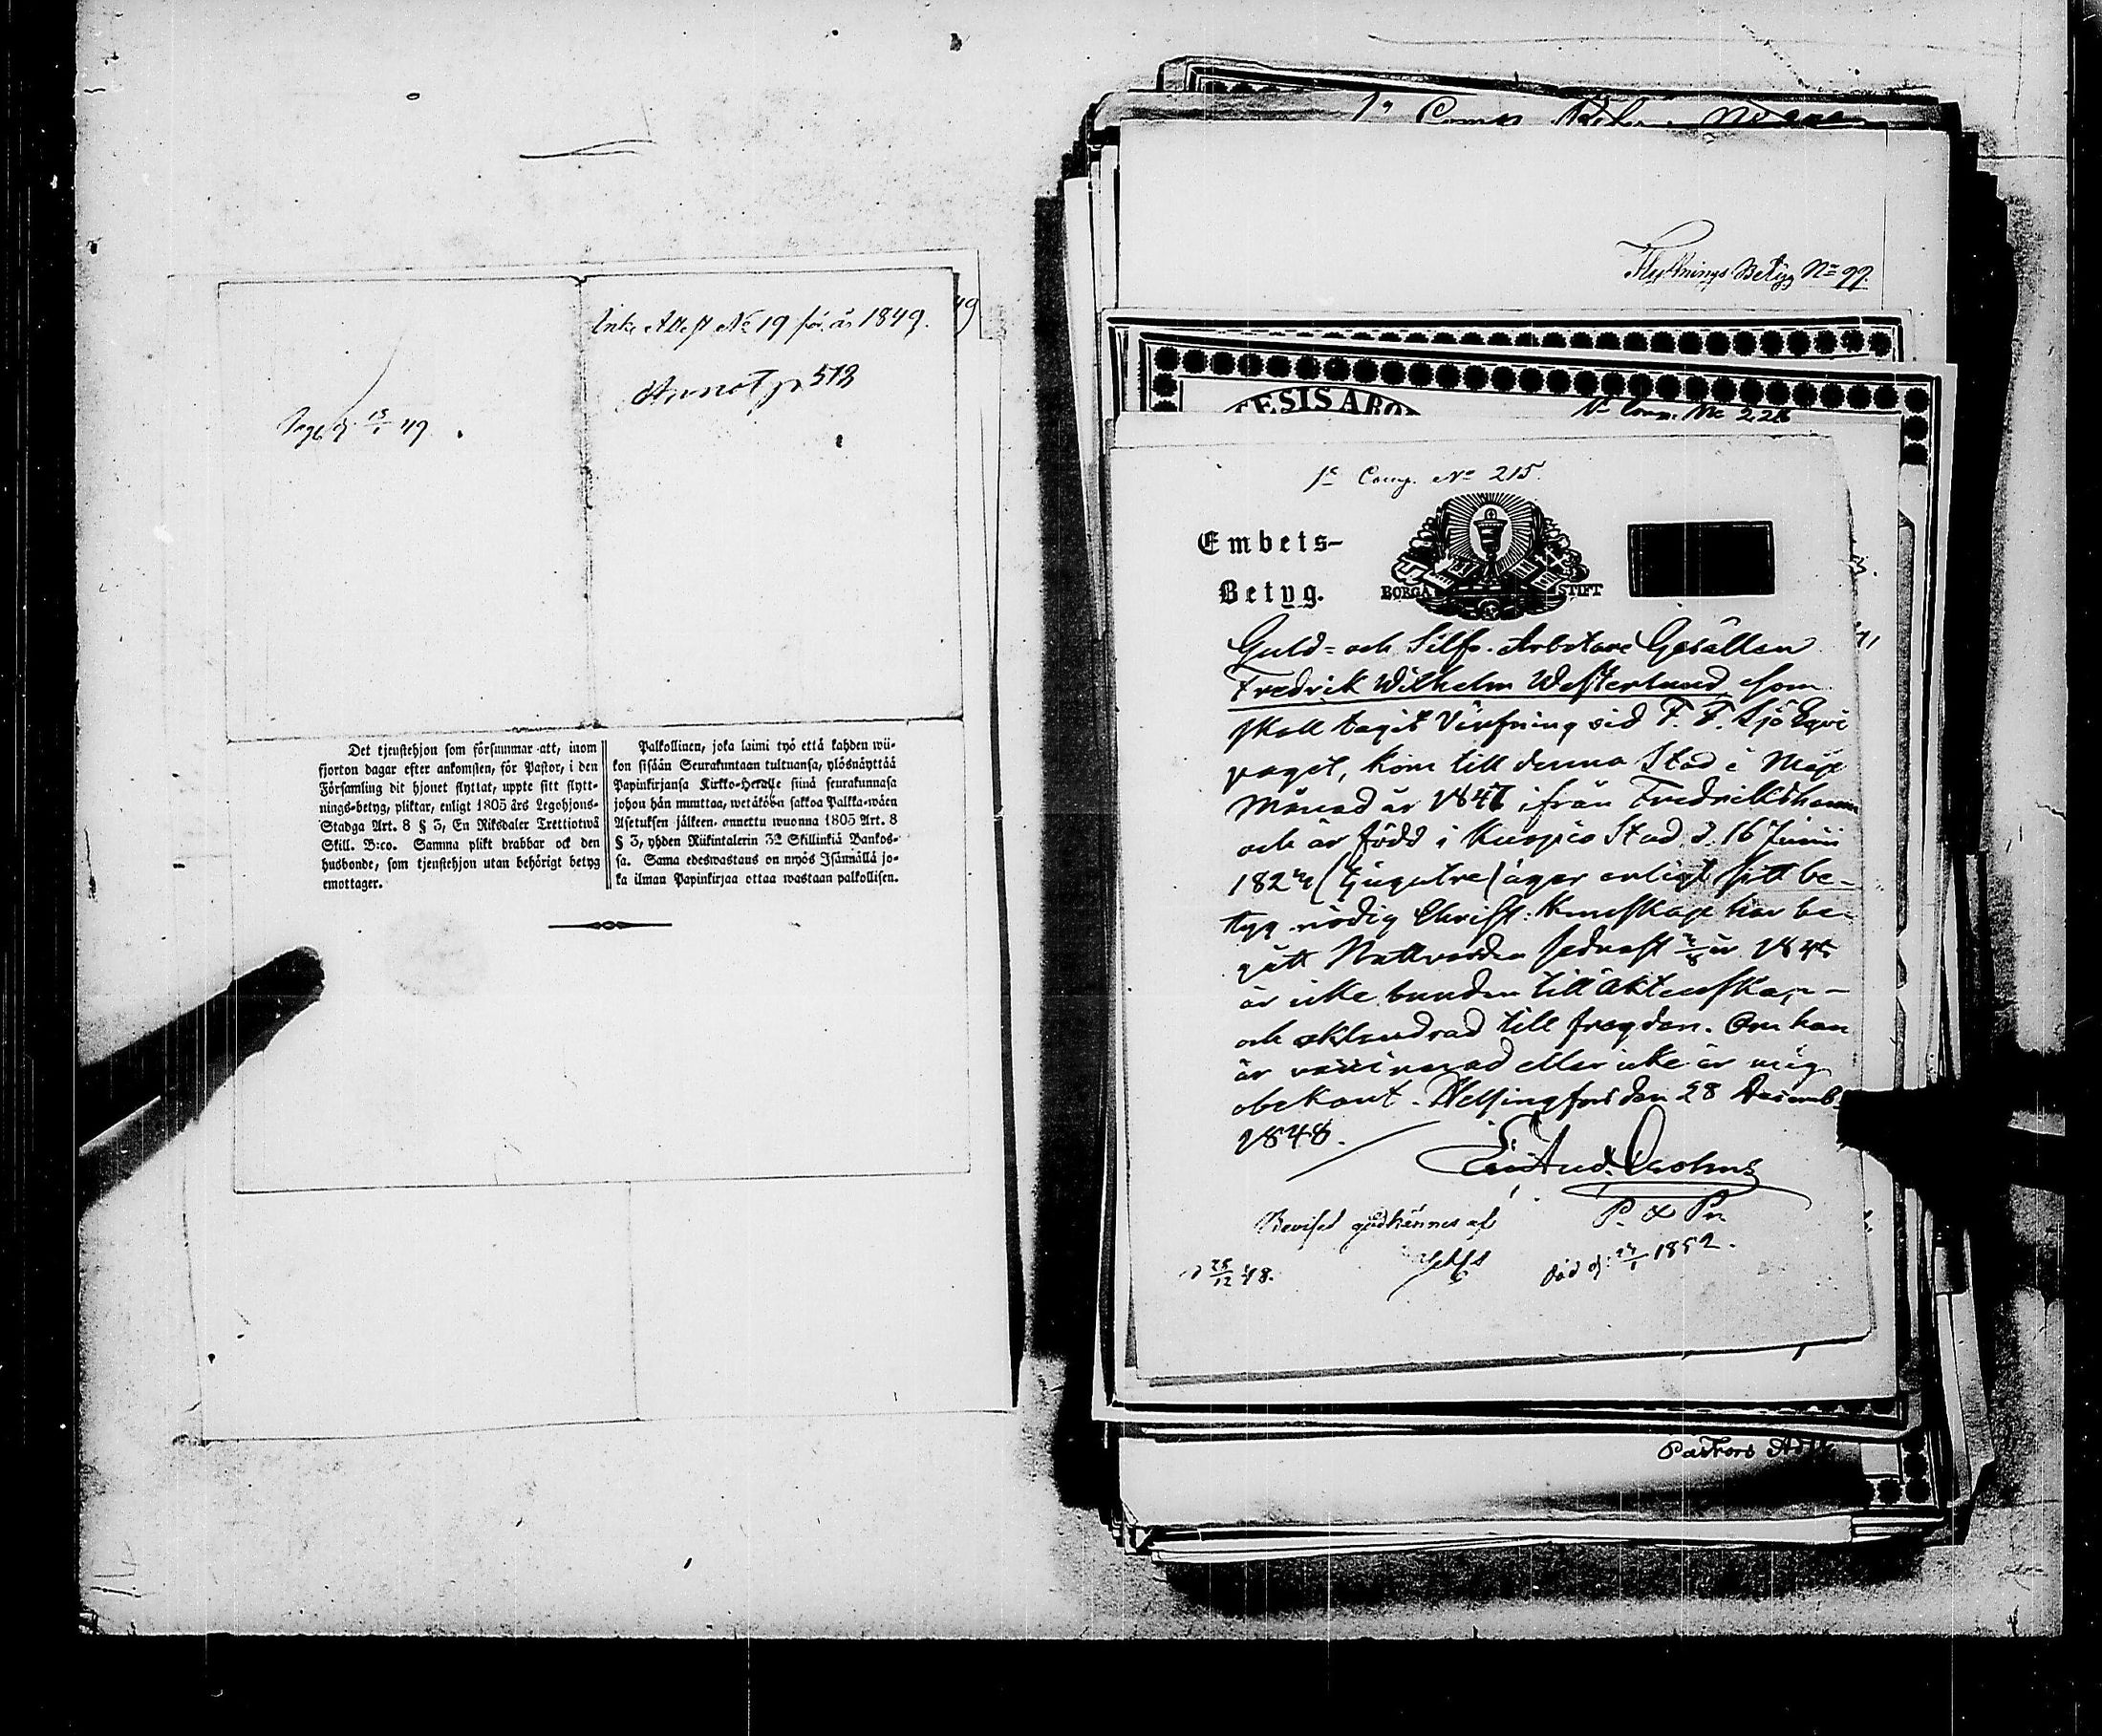 Inke Attest No 19 för år 1849.
Annot p 512
49
Det tjenstehjon som försummar att, inom
fjorton dagar efter ankomsten, för Pastor, i den
Församling dit hjonet flyttat, uppte sitt flytt-
nings-betyg, pliktar, enligt 1805 års Legohjons-
Stadga Art. 8 § 3, En Riksdaler Trettiotwå
Skill. B:co. Samma plikt drabbar ock den
husbonde, som tjenstehjon utan behörigt betyg
emottager.
Palkollinen, joka laimi työ että kahden wii-
kon sisään Seurakuntaan tultuansa, ylösnäyttää
Papinkirjansa Kirkko-Herralle siinä seurakunnasa
johon hän muuttaa, wetäköön sakkoa Palkka-wäen
Asetuksen jälkeen, annettu wuonna 1805 Art. 8
§ 3, yhden Riikintalerin 32 Skillinkiä Bankos-
sa. Sama edeswastaus on myös Isännällä jo-
ka ilman Papinkirjaa ottaa wastaan palkollisen.
Flyttnings Betyg No 99.
No Comp. No 228
1e Comp. No 215.
Embets-
Betyg.
BORGÅ STIFT
Guld= och Silfr. Arbetare Gesällen
Fredrik Wilhelm Westerlund, som
skall tagit Värfning vid F. F. Sjö Equi
paget, kom till denna Stad i Maji
Månad år 1847 ifrån Fredrikshamn
och är född i Kuopio Stad d. 16 Junii
182 (tjugutre) äger enligt sitt be-
tyg nödig Christ: Kunskap har be-
gått Nattvarden sednast år 184
är icke bunden till Äktenskap -
och oklandrad till fregden. Om han
är vaccinerad eller icke är mig
obekant. Helsingfors den 28 Decemb.
1848.
P. & Pr.
Beviset godkännes af
28/12 48.
Död d: 24/1 1852.
Pastors